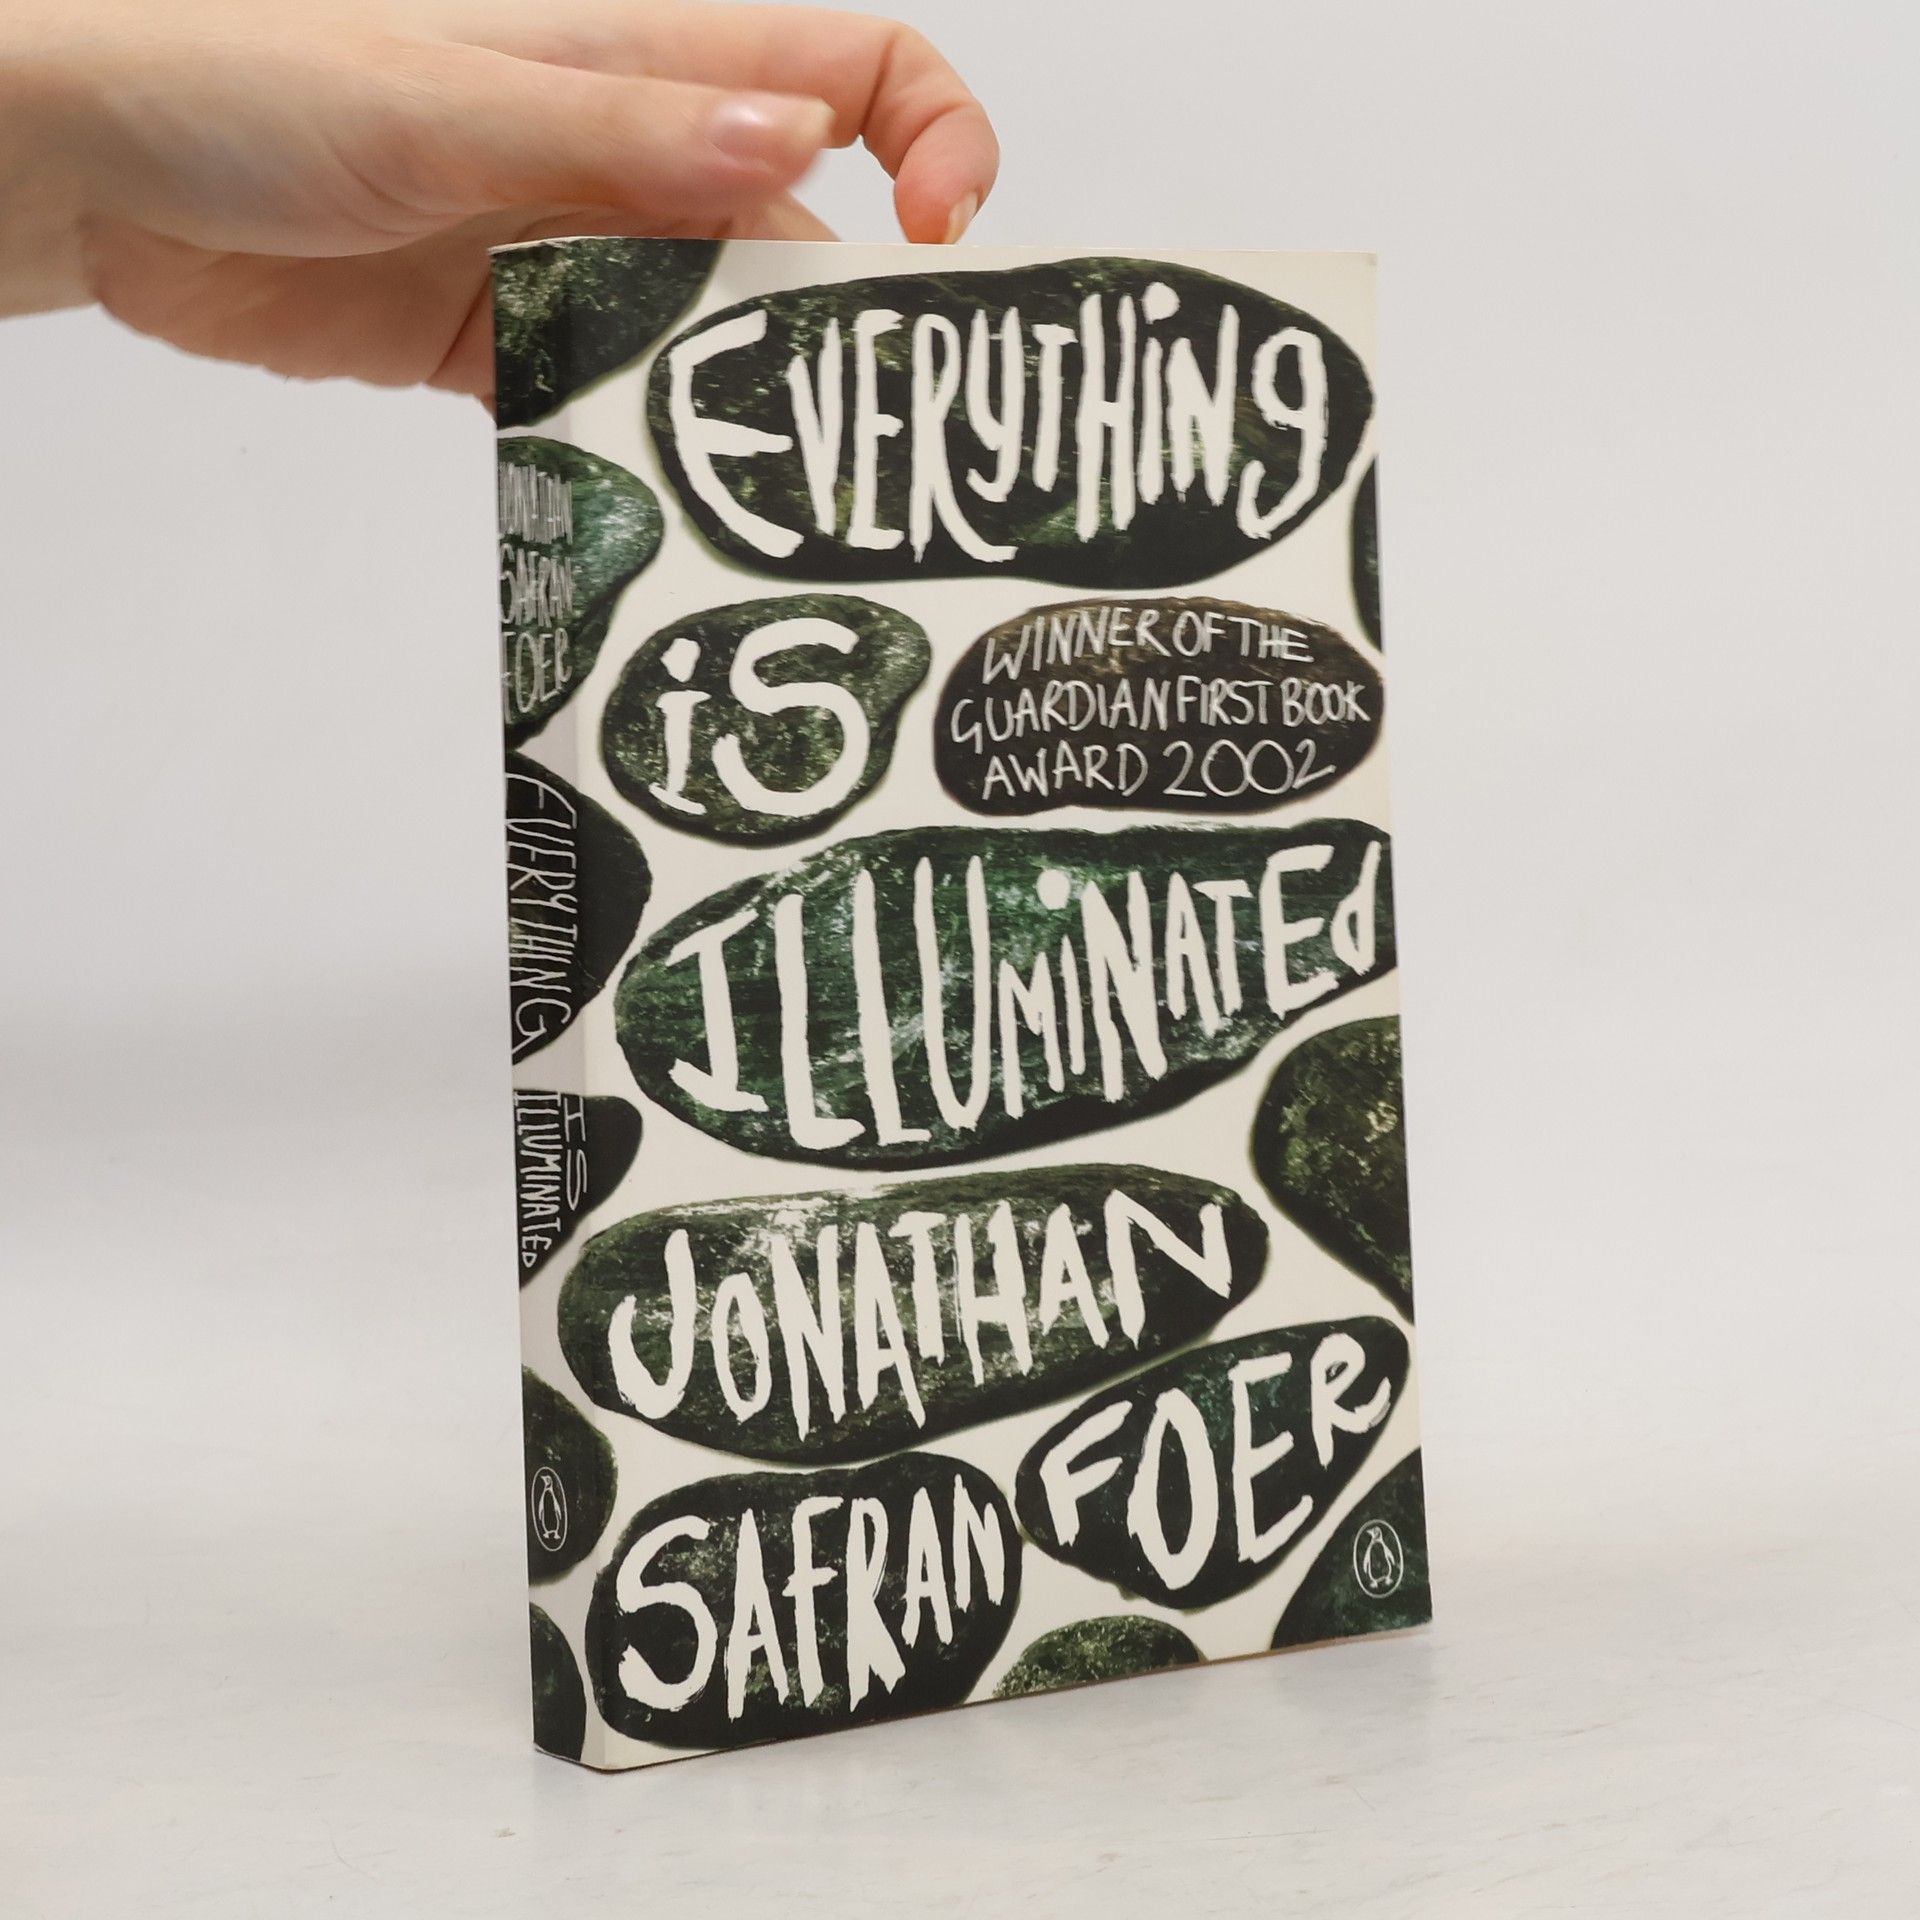 EVERYTHiNg
iS
WINNER OF THE
GUARDIAN FIRST BOOK
AWARD 2002
ILLUMiNATEd
JONATHAN
SAFRAN
FOER
JONATHAN
SAFRAN
FOER
EVERYTHING
IS
ILLUMINATED